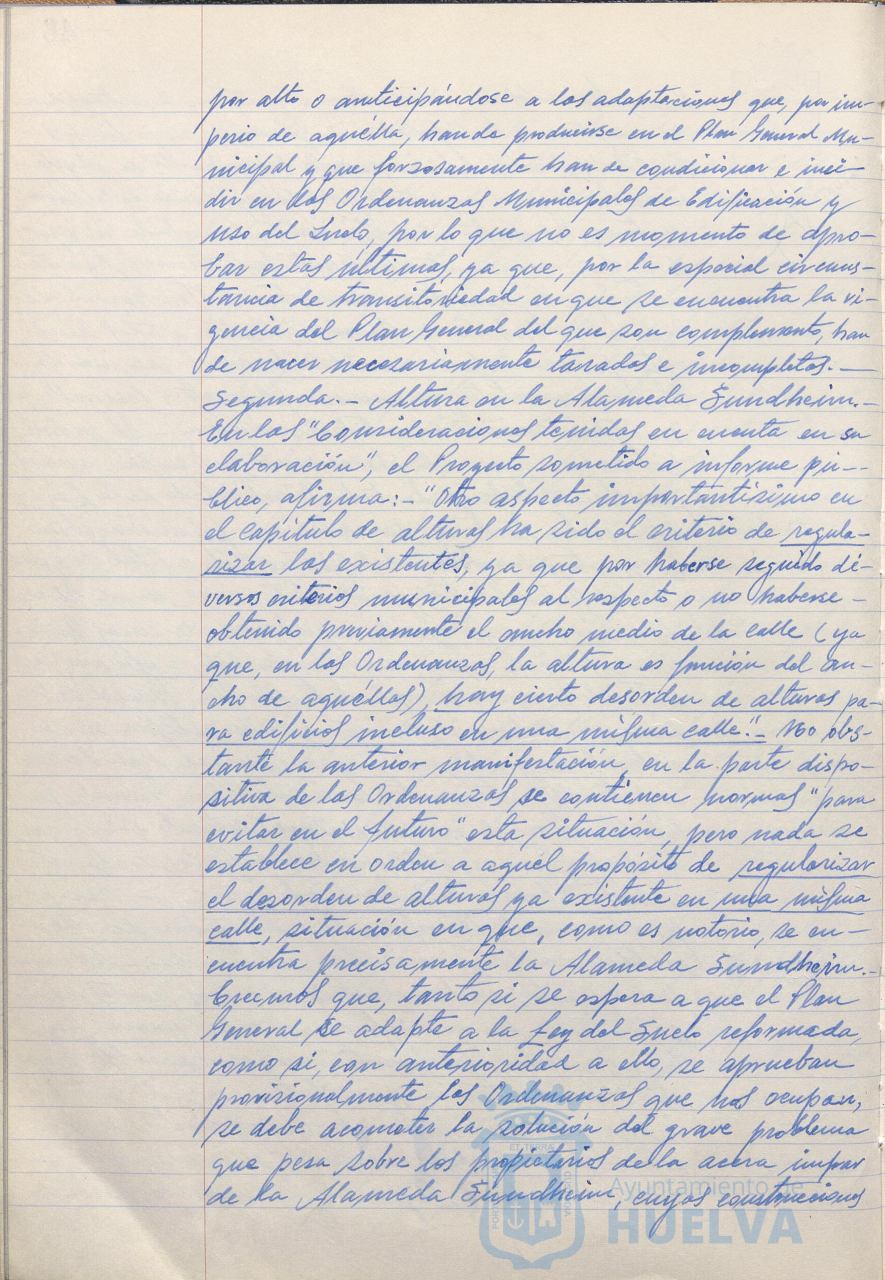 por alto o anticipándose a las adaptaciones que, por im-
perio de aquélla, han de producirse en el Plan General Mu-
nicipal y que forzosamente han de condicionar e inci-
dir en las Ordenanzas Municipales de Edificación y
uso del Suelo, por lo que no es momento de apro-
bar estas últimas, ya que, por la especial circuns-
tancia de transitoriedad en que se encuentra la vi-
gencia del Plan General del que son complemento, han
de nacer necesariamente taradas e incompletas.-
Segunda.- Altura en la Alameda Sundheim.-
En las "Consideraciones tenidas en cuenta en su
elaboración", el Proyecto sometido a informe pú--
blico, afirma:- "Otro aspecto importantísimo en
el capítulo de alturas ha sido el criterio de regula-
rizar las existentes, ya que por haberse seguido di-
versos criterios municipales al respecto o no haberse -
obtenido previamente el ancho medio de la calle (ya
que, en las Ordenanzas, la altura es función del an-
cho de aquéllas), hay cierto desorden de alturas pa-
ra edificios incluso en una misma calle".- No obs-
tante la anterior manifestación, en la parte dispo-
sitiva de las Ordenanzas se contienen normas "para
evitar en el futuro" esta situación, pero nada se
establece en orden a aquel propósito de regularizar
el desorden de alturas ya existente en una misma
calle, situación en que, como es notorio, se en-
cuentra precisamente la Alameda Sundheim.-
Creemos que, tanto si se espera a que el Plan
General se adapte a la Ley del Suelo reformada,
como si, con anterioridad a ello, se aprueban
provisionalmente las Ordenanzas que nos ocupan,
se debe acometer la solución del grave problema
que pesa sobre los propietarios de la acera impar
de la Alameda Sundheim, cuyas construcciones
Ayuntamiento de
HUELVA